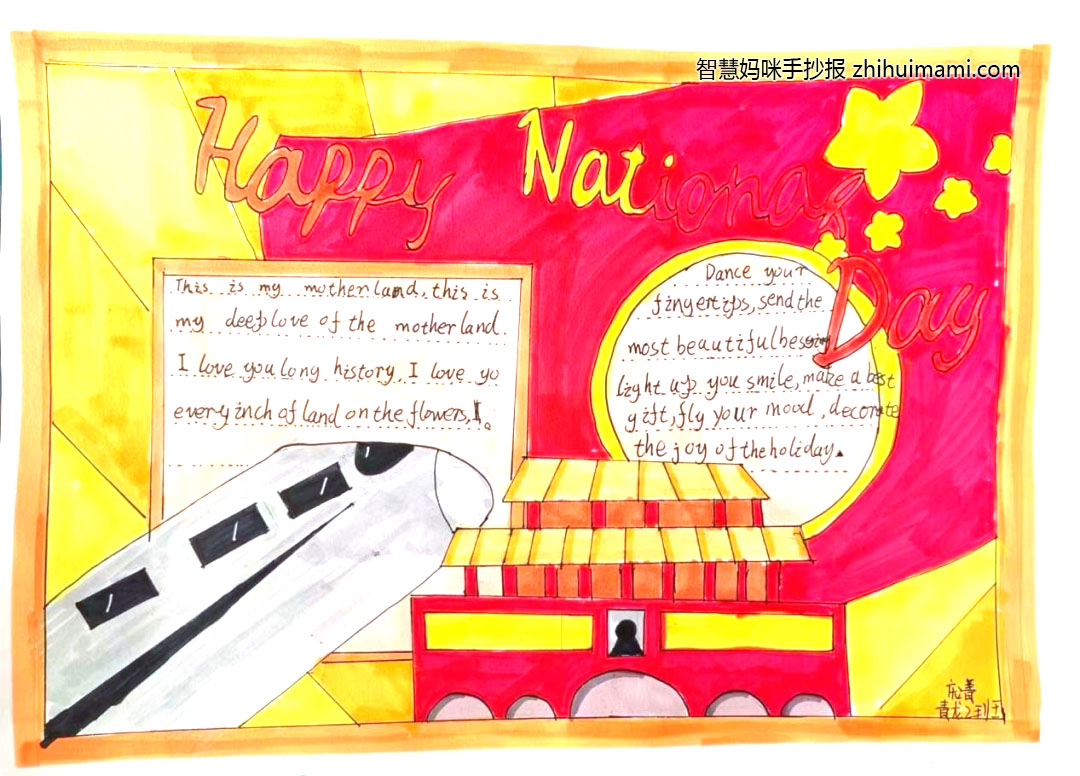 智慧妈咪手抄报 zhihuimami.com
Happy National Day
This is my motherland, this is
my deep love of the motherland
I love you long history, I love yo
every inch of land on the flowers, I.
Dance your
fingertips, send the
most beautiful bessing
light up you smile, make a best
gift, fly your mood, decorate
the joy of the holiday.